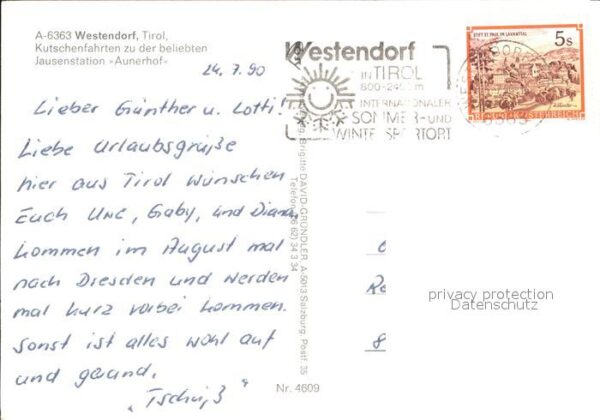 A-6363 Westendorf, Tirol,
Kutschenfahrten zu der beliebten
Jausenstation »Aunerhof«
24.7.90
Lieber Günther u. Lotti!
Liebe Urlaubsgrüße
hier aus Tirol wünschen
Euch Uwe, Gaby, und Diana,
kommen im August mal
nach Dresden und werden
mal kurz vorbei kommen.
Sonst ist alles wohl auf
und gesund.
„Tschüß"
Westendorf
in TIROL
INTERNATIONALER
SOMMER- und
WINTERSPORTORT
STIFT ST. PAUL IM LAVANTTAL
5s
REPUBLIK ÖSTERREICH
Brigitte DAVID-GRÜNDLER, A-5013 Salzburg, Postf. 35
Nr. 4609
privacy protection
Datenschutz